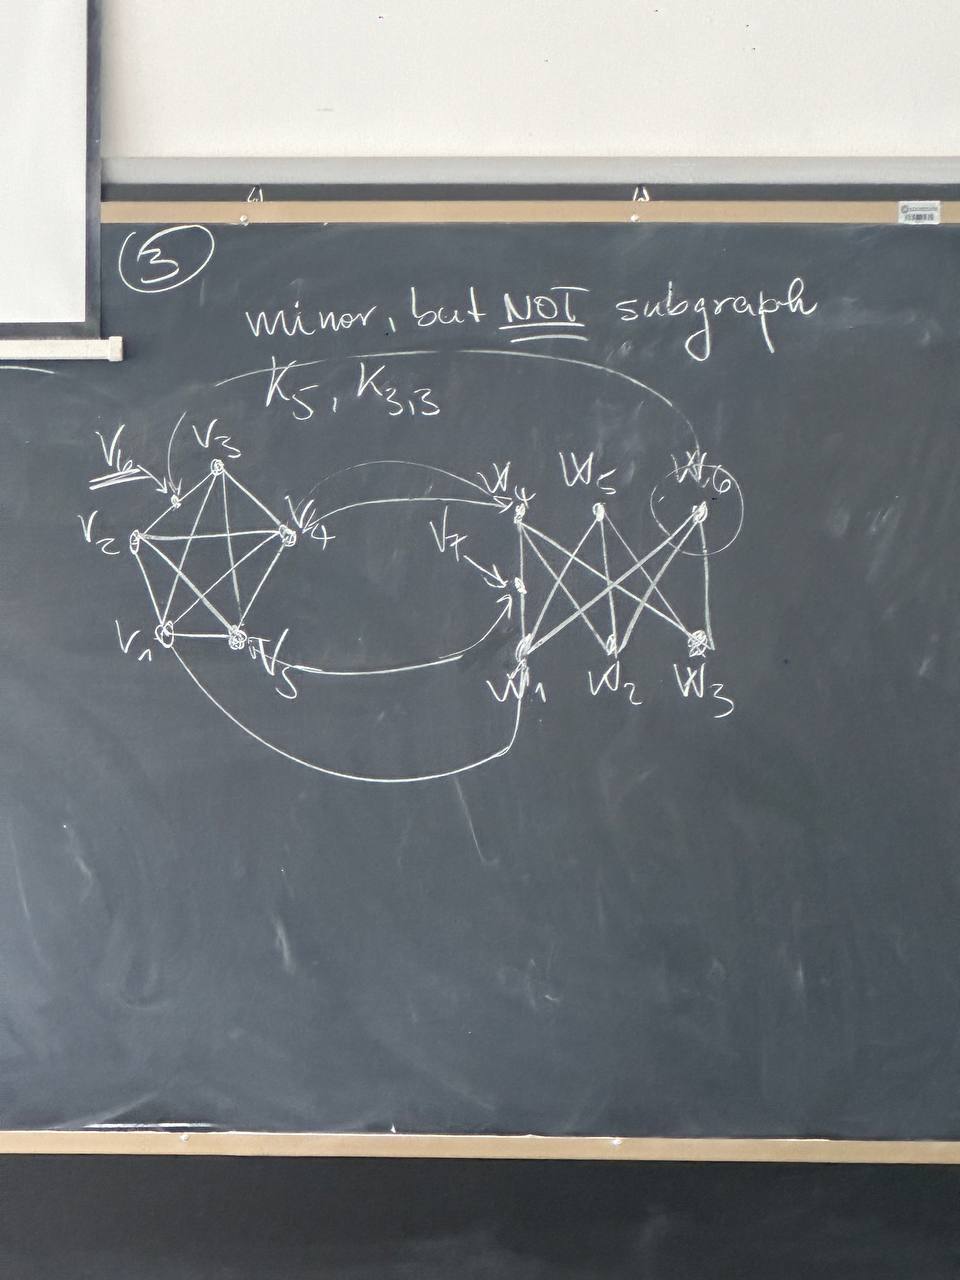 3
minor, but NOT subgraph
K5, K3,3
V6 V3
V2 V4 W4 W5 W6
V7
V1 V5 W1 W2 W3